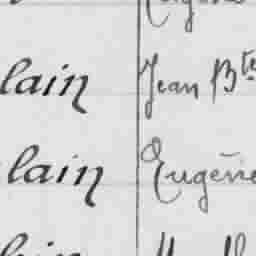 lain Jean Bte
lain Eugène